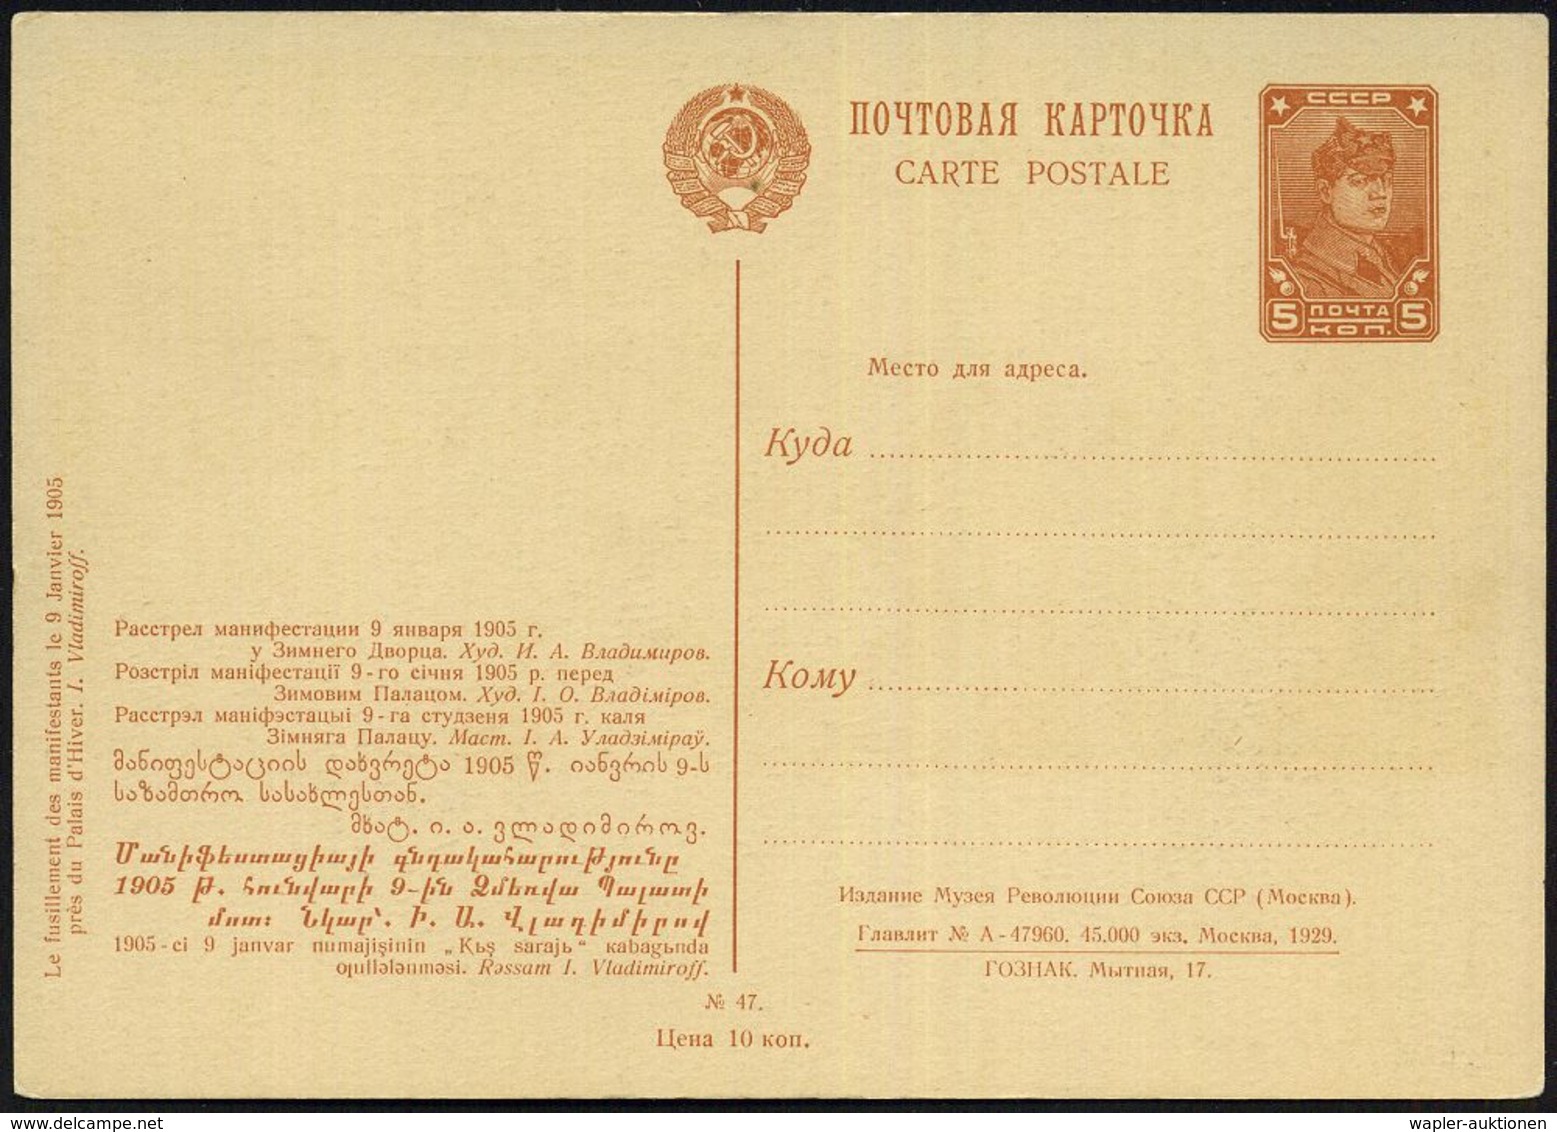 ПОЧТОВАЯ КАРТОЧКА
CARTE POSTALE
СССР
5 ПОЧТА 5
КОП.
Место для адреса.
Куда
Кому
Le fusillement des manifestants le 9 Janvier 1905
près du Palais d'Hiver. I. Vladimiroff.
Расстрел манифестации 9 января 1905 г.
у Зимнего Дворца. Худ. И. А. Владимиров.
Розстріл маніфестації 9-го січня 1905 р. перед
Зимовим Палацом. Худ. І. О. Владіміров.
Расстрэл маніфэстацыі 9-га студзеня 1905 г. каля
Зімняга Палацу. Маст. І. А. Уладзіміраў.
მანიფესტაციის დახვრეტა 1905 წ. იანვრის 9-ს
საზამთრო სასახლესთან.
მხატ. ი. ა. ვლადიმიროვ.
Մանիֆեստացիայի գնդակահարությունը
1905 թ. հունվարի 9-ին Ձմեռվա Պալատի
մոտ: Նկար՝. Ի. Ա. Վլադիմիրով
1905-ci 9 janvar numajişinin „Kьş sarajь“ kabagьnda
oɲullələnməsi. Rəssam I. Vladimiroff.
Издание Музея Революции Союза ССР (Москва).
Главлит № А-47960. 45.000 экз. Москва, 1929.
ГОЗНАК. Мытная, 17.
№ 47.
Цена 10 коп.
wapler-auktionen